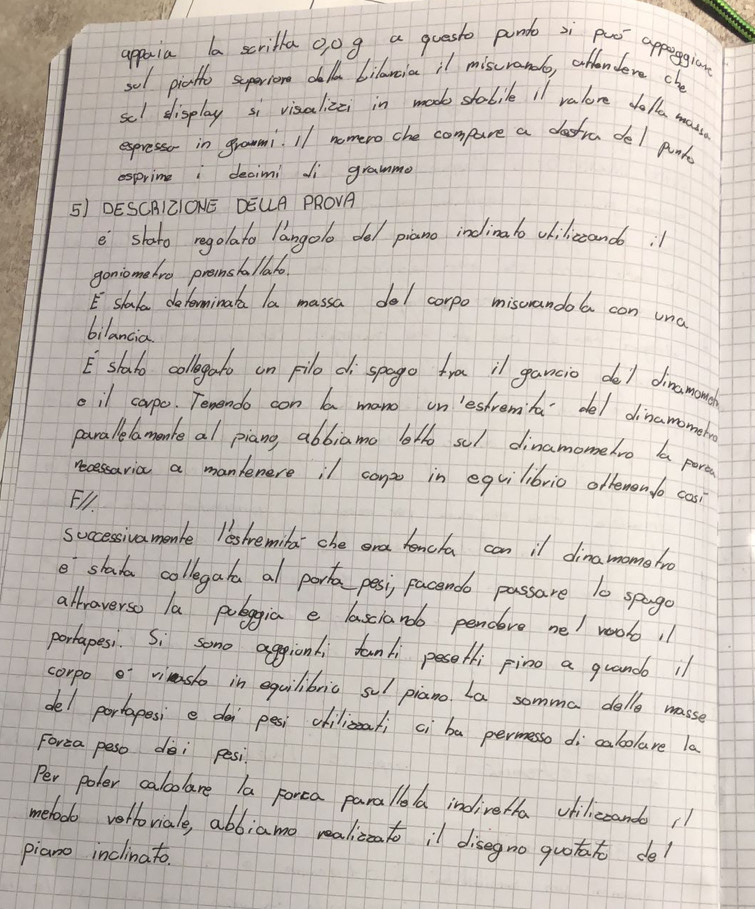 appaia la scritta 0,0 g a questo punto si può appoggiare
sul piatto superiore della bilancia il misurando, attendere che
sul display si visualizzi in modo stabile il valore della massa
espresso in grammi. Il numero che compare a destra del punto
esprime i decimi di grammo
5) DESCRIZIONE DELLA PROVA
è stato regolato l'angolo del piano inclinato utilizzando il
goniometro preinstallato.
È stata determinata la massa del corpo misurandola con una
bilancia.
È stato collegato un filo di spago tra il gancio del dinamometro
e il corpo. Tenendo con la mano un'estremità del dinamometro
parallelamente al piano, abbiamo letto sul dinamometro la forza
necessaria a mantenere il corpo in equilibrio ottenendo così
F//.
Successivamente l'estremità che era tenuta con il dinamometro
è stata collegata al porta pesi, facendo passare lo spago
attraverso la puleggia e lasciando pendere nel vuoto il
portapesi. Si sono aggiunti tanti pesetti fino a quando il
corpo è rimasto in equilibrio sul piano. La somma delle masse
del portapesi e dei pesi utilizzati ci ha permesso di calcolare la
Forza peso dei pesi.
Per poter calcolare la forza parallela indiretta utilizzando il
metodo vettoriale, abbiamo realizzato il disegno quotato del
piano inclinato.